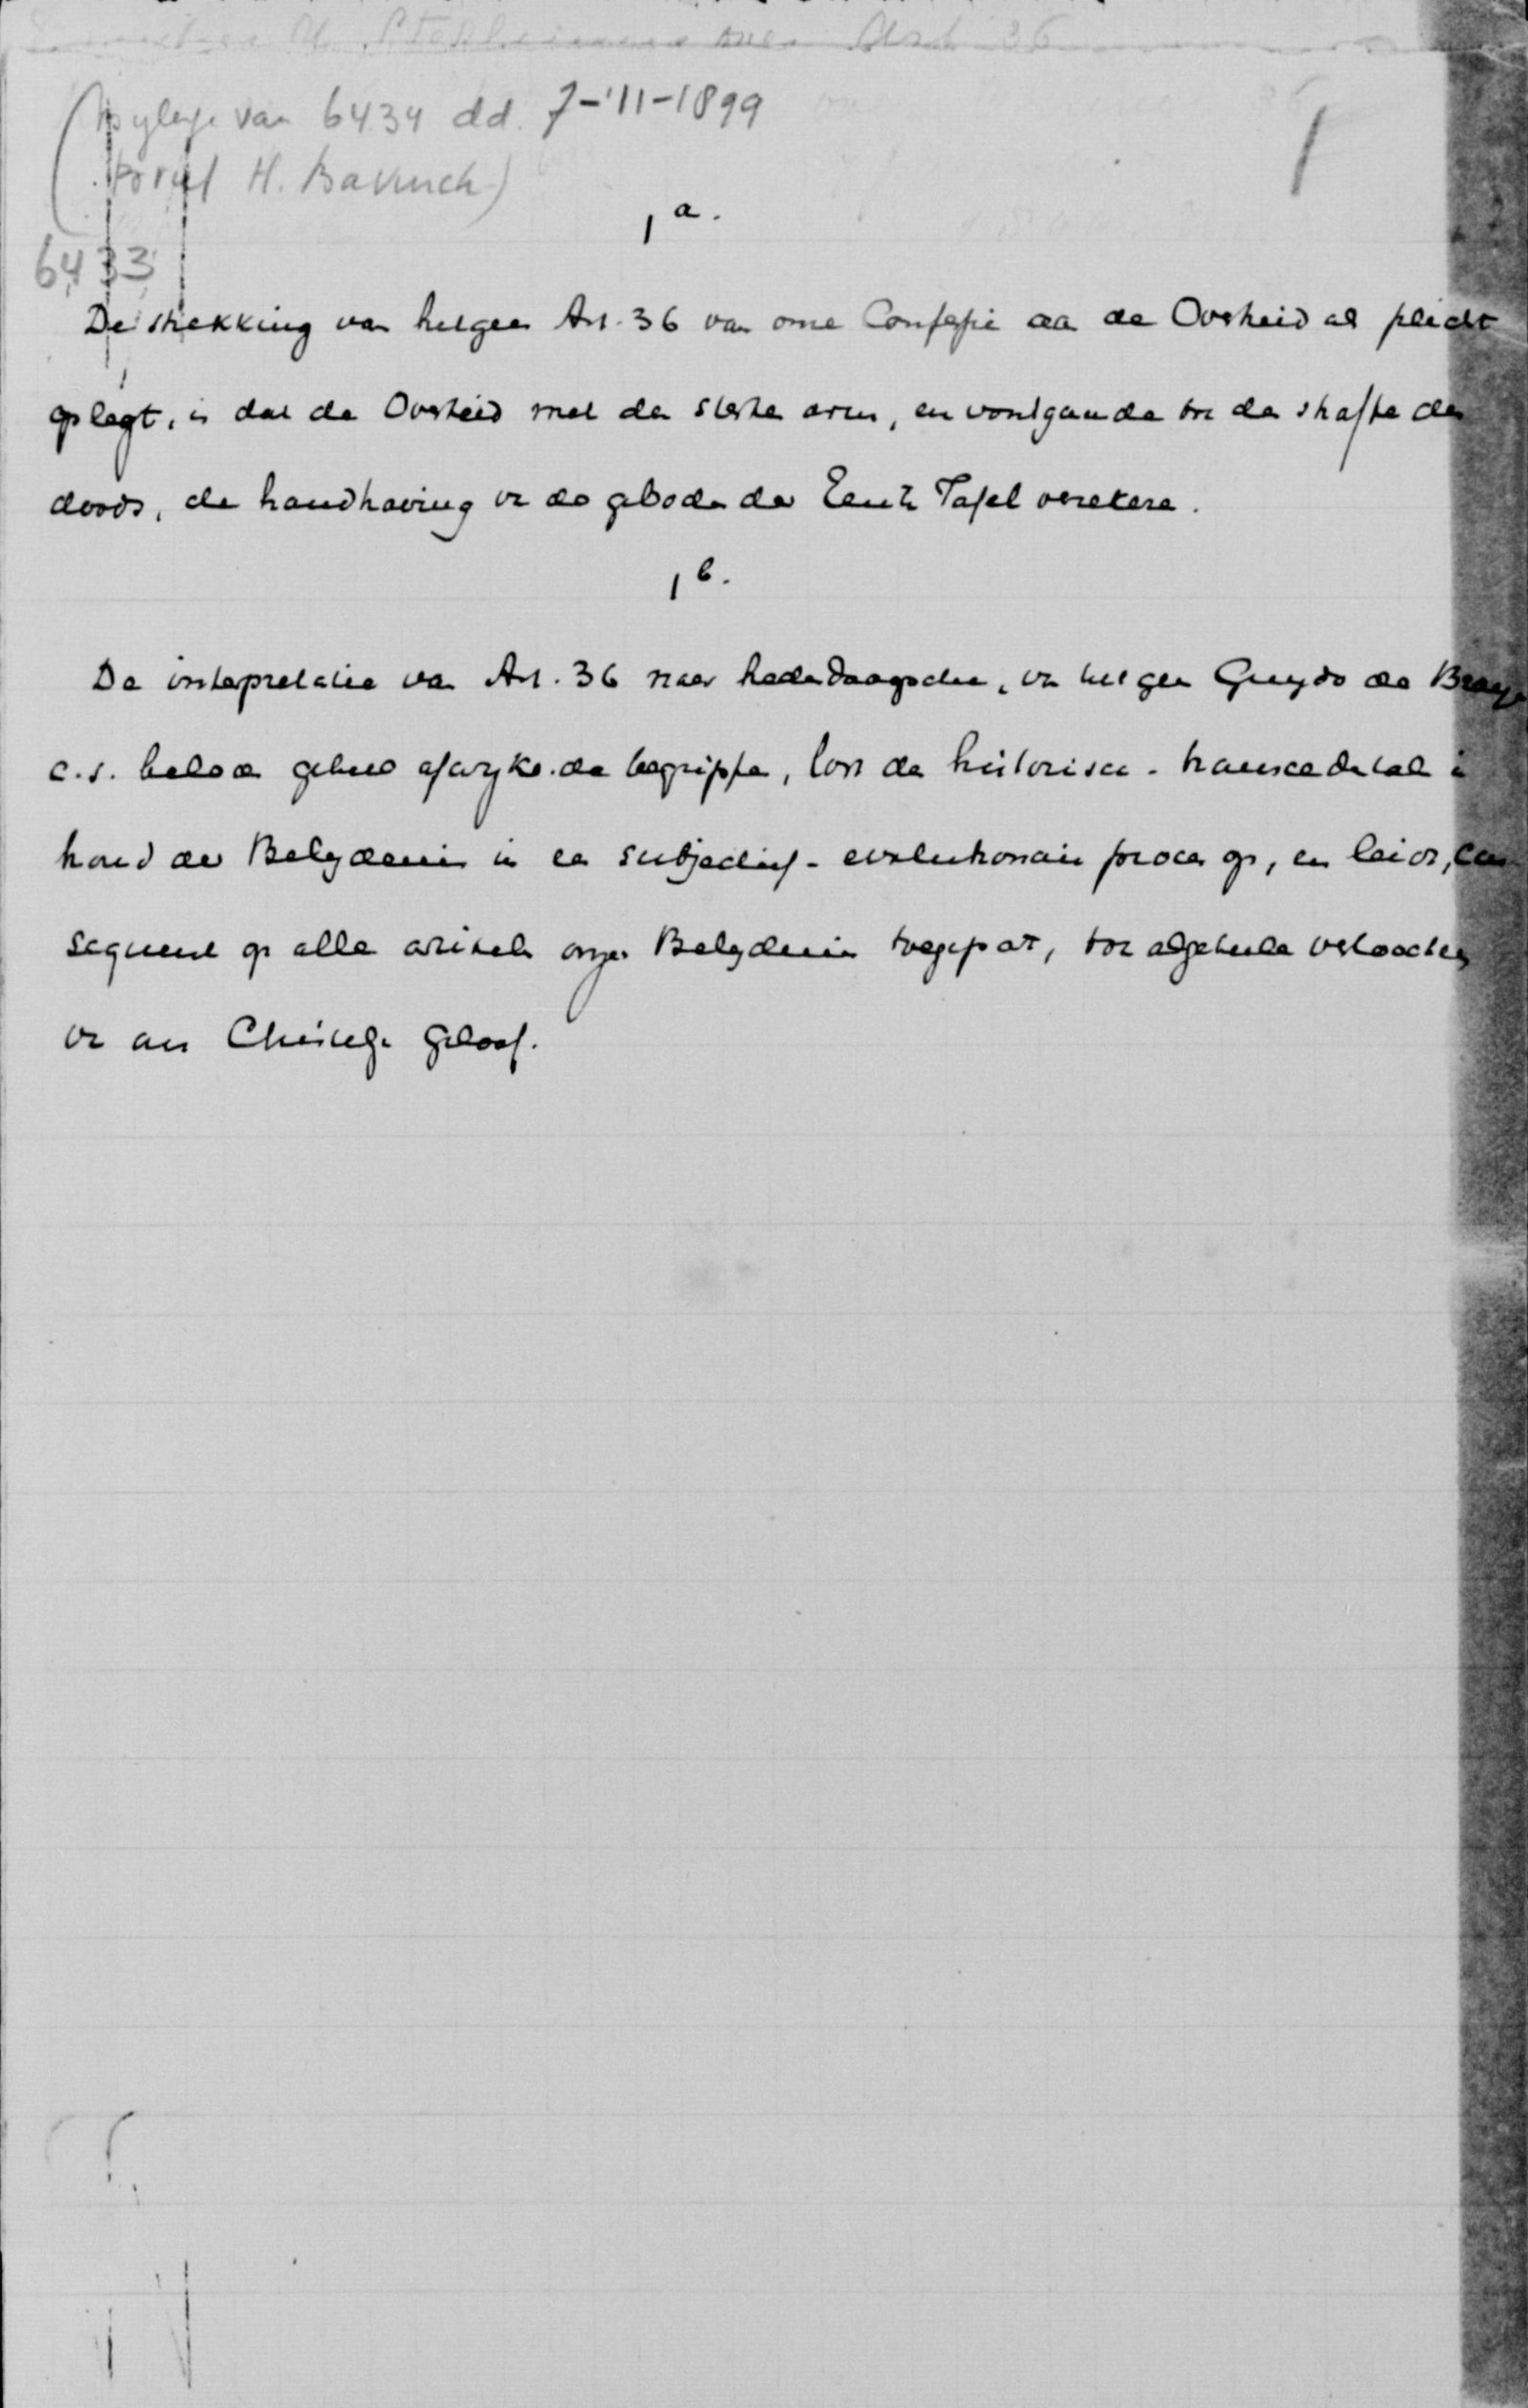 (bylage van 6434 dd. 7-'11-1899
prof H. Bavinck)
1a.
6433
De strekking van hetgeen Art. 36 van onze Confessie aan de Overheid als plicht
oplegt, is dat de Overheid met den sterken arm, en voortgaande tot de straffe des
doods, de handhaving vn de geboden der Eerste Tafel verzekere.
1b.
De interpretatie van Art. 36 naar hedendaagsche, vn hetgeen Guydo de Bray
c.s. beleed geheel afwykende begrippen, lost de historisch-transcedentale in
houd der Belydenis in een subjectief-evolutionair proces op, en leidt, con-
sequent op alle artikelen onzer Belydenis toegepast, tot algeheele verloochening
vn ons Christelyk geloof.